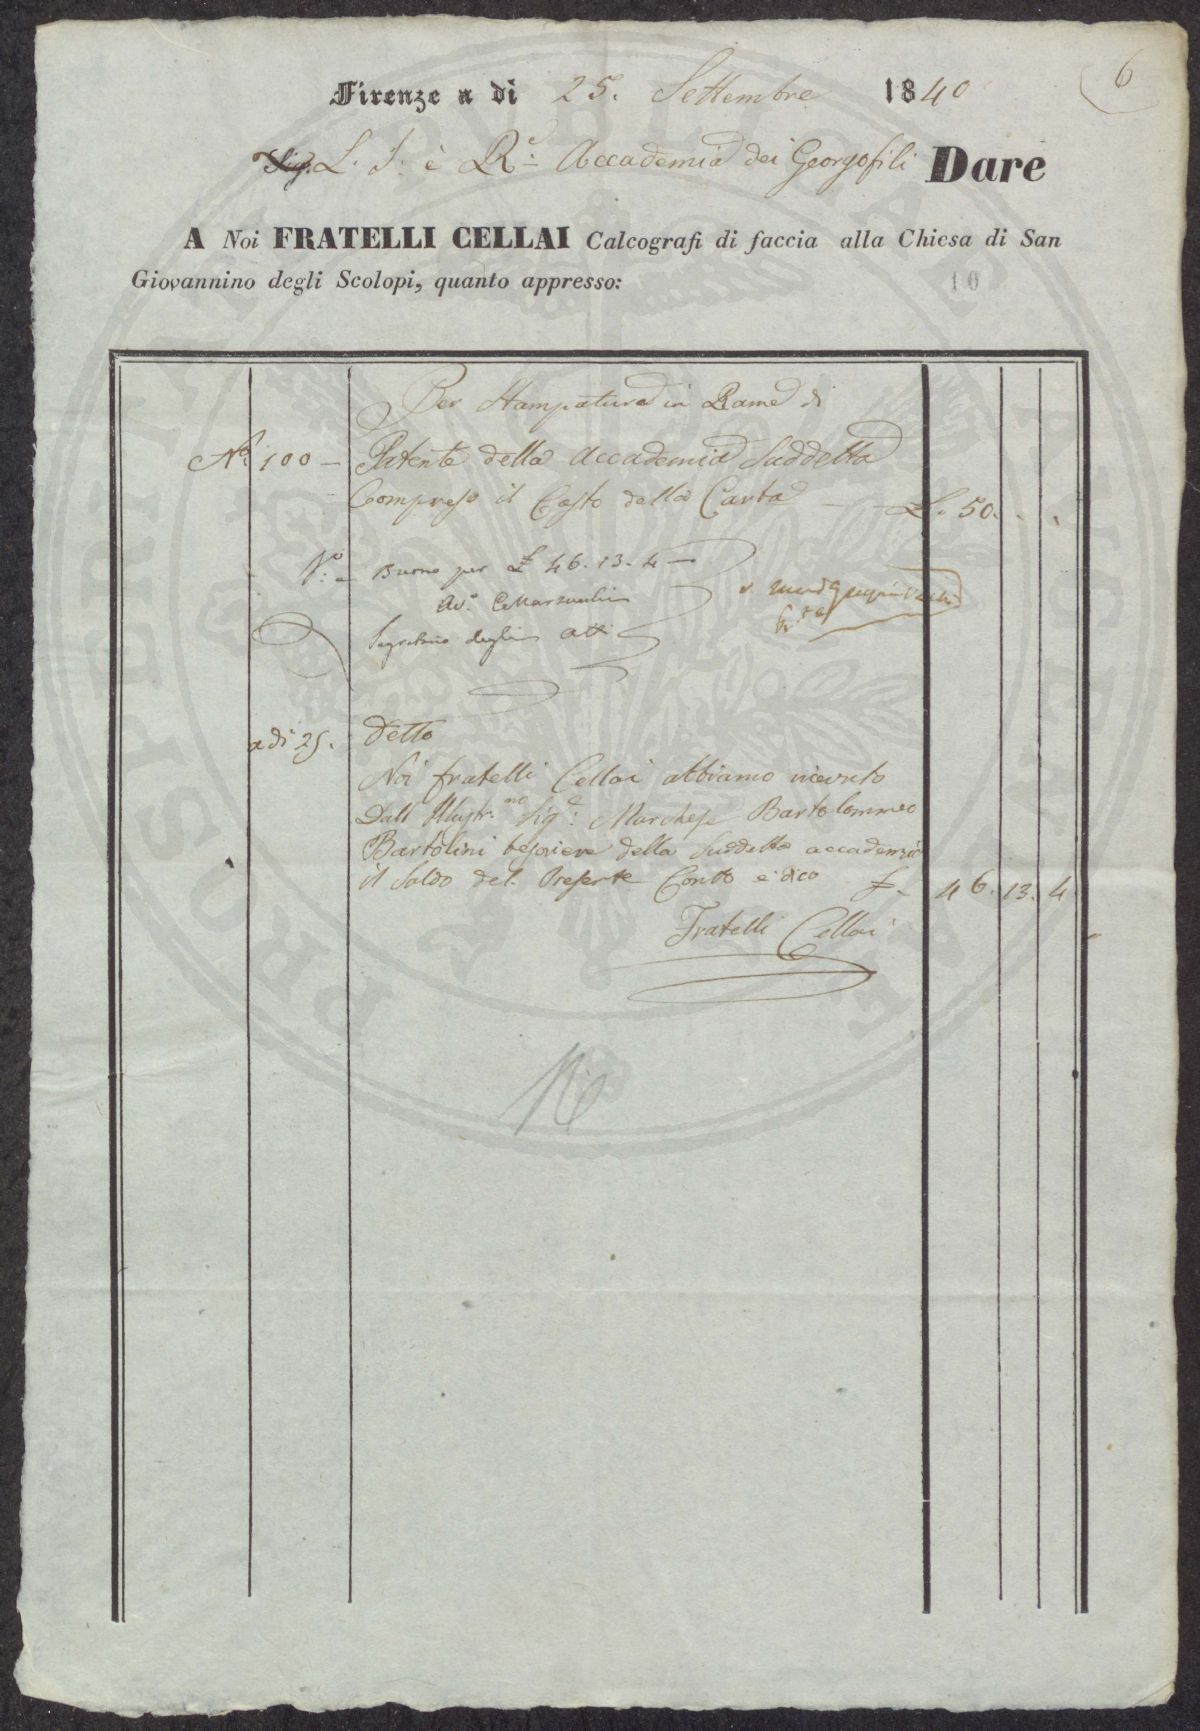 6
Firenze a dì 25. Settembre 1840
Sig. L. I. è R.e Accademia dei Georgofili Dare
A Noi FRATELLI CELLAI Calcografi di faccia alla Chiesa di San
Giovannino degli Scolopi, quanto appresso:
10
Per Stampatura in Rame di
N.o 100 — Patente della Accademia Suddetta
Compreso il Costo della Carta — L. 50. . .
Buono per £ 46. 13. 4 —
Segretario degli Atti
a di 25. Detto
Noi fratelli Cellai abbiamo ricevuto
Dall Illustr.mo Sig.e Marchese Bartolommeo
Bartolini tesoriere della Suddetta accademia
il Saldo del Presente Conto e dico £ 46. 13. 4
Fratelli Cellai